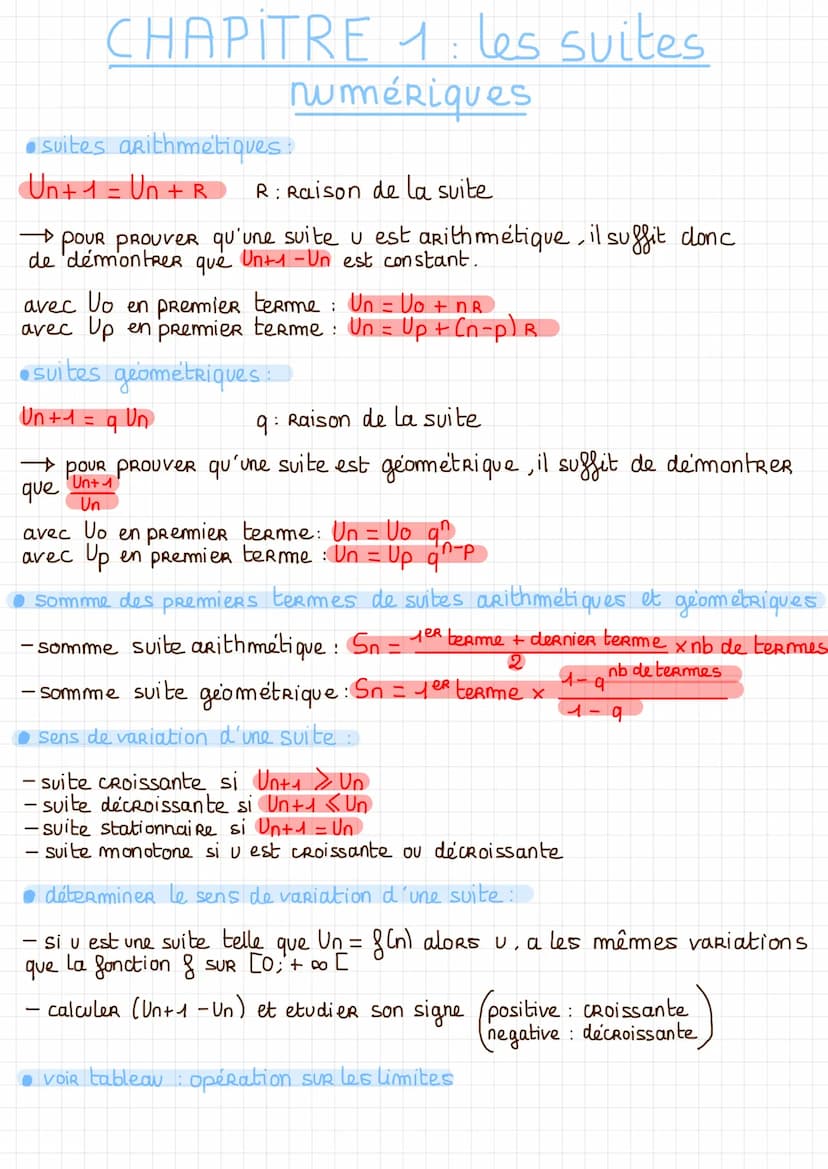 CHAPITRE 1 : les suites
numériques
• suites arithmétiques :
Un+1 = Un + R    R : Raison de la suite
→ pour prouver qu'une suite u est arithmétique, il suffit donc
de démontrer que Un+1 - Un est constant.
avec U0 en premier terme : Un = U0 + nR
avec Up en premier terme : Un = Up + (n-p) R
• suites géométriques :
Un+1 = q Un    q : Raison de la suite
→ pour prouver qu'une suite est géométrique, il suffit de démontrer
que Un+1/Un
avec U0 en premier terme : Un = U0 qⁿ
avec Up en premier terme : Un = Up qⁿ⁻ᵖ
• somme des premiers termes de suites arithmétiques et géométriques
- somme suite arithmétique : Sn = (1er terme + dernier terme)/2 × nb de termes
- somme suite géométrique : Sn = 1er terme × (1 - q^nb de termes)/(1 - q)
• sens de variation d'une suite :
- suite croissante si Un+1 ⩾ Un
- suite décroissante si Un+1 ⩽ Un
- suite stationnaire si Un+1 = Un
- suite monotone si u est croissante ou décroissante
• déterminer le sens de variation d'une suite :
- si u est une suite telle que Un = f(n) alors u, a les mêmes variations
que la fonction f sur [0; +∞[
- calculer (Un+1 - Un) et etudier son signe (positive : croissante
negative : décroissante)
• voir tableau : opération sur les limites